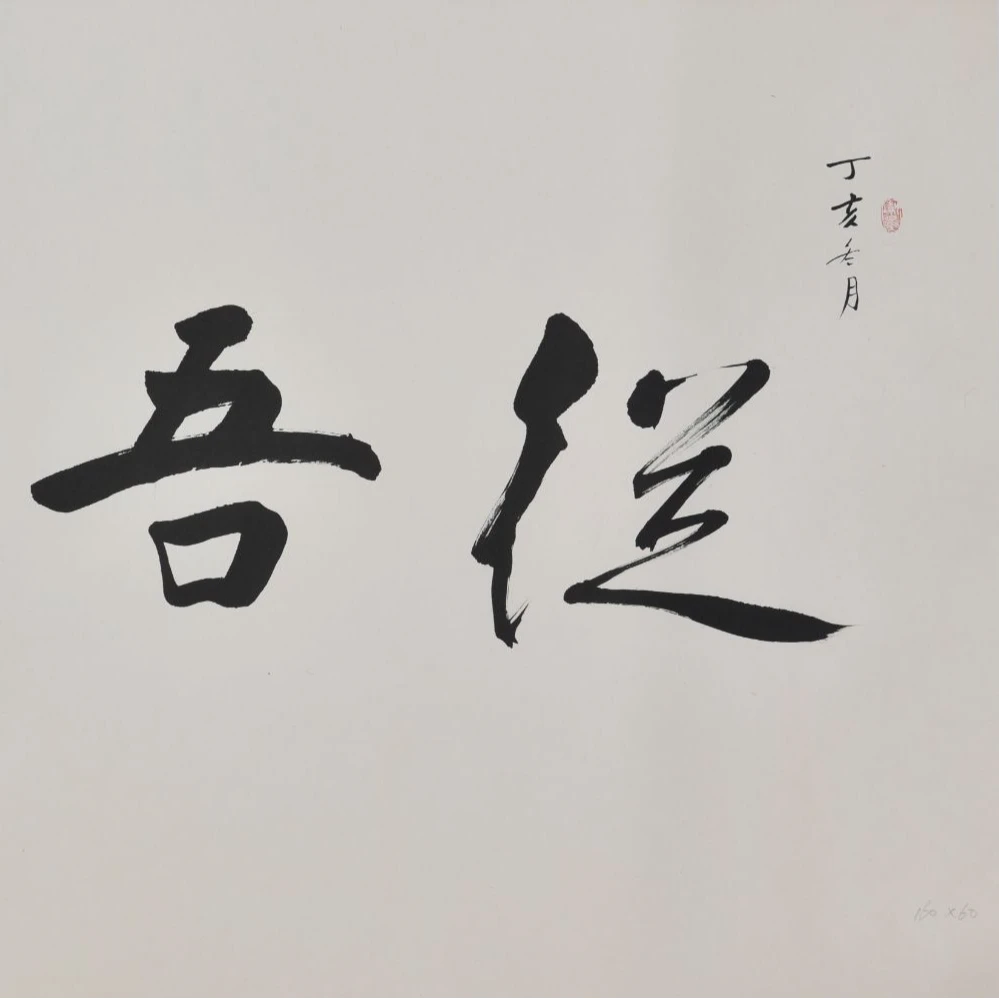 丁亥冬月
從吾
150 x 60